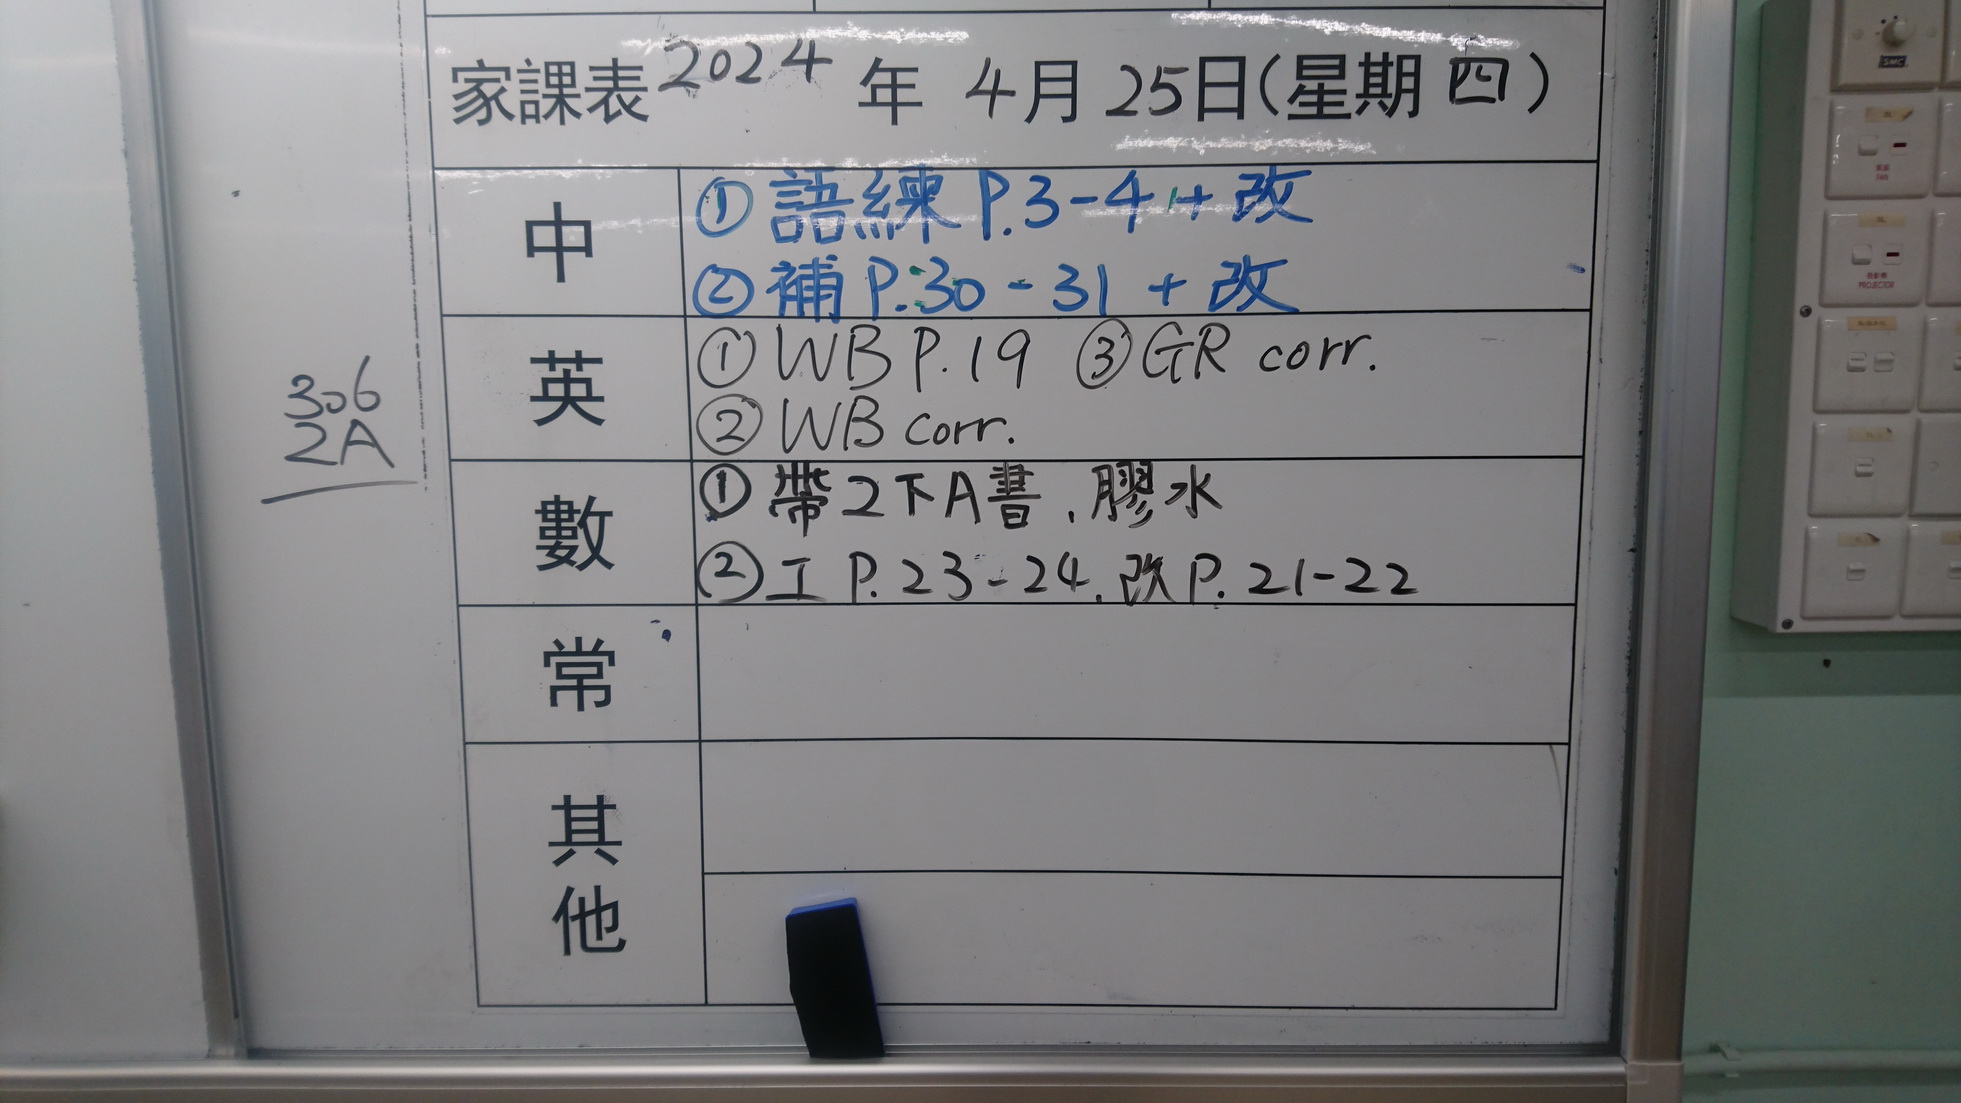 家課表 2024 年 4月 25日(星期 四)
中
① 語練 P.3-4 + 改
② 補 P.30 - 31 + 改
306
2A
英
① WB P.19 ③ GR corr.
② WB corr.
數
① 帶2下A書﹑膠水
② 工 P. 23-24﹑改 P. 21-22
常
其
他
SMC
FAN
PROJECTOR